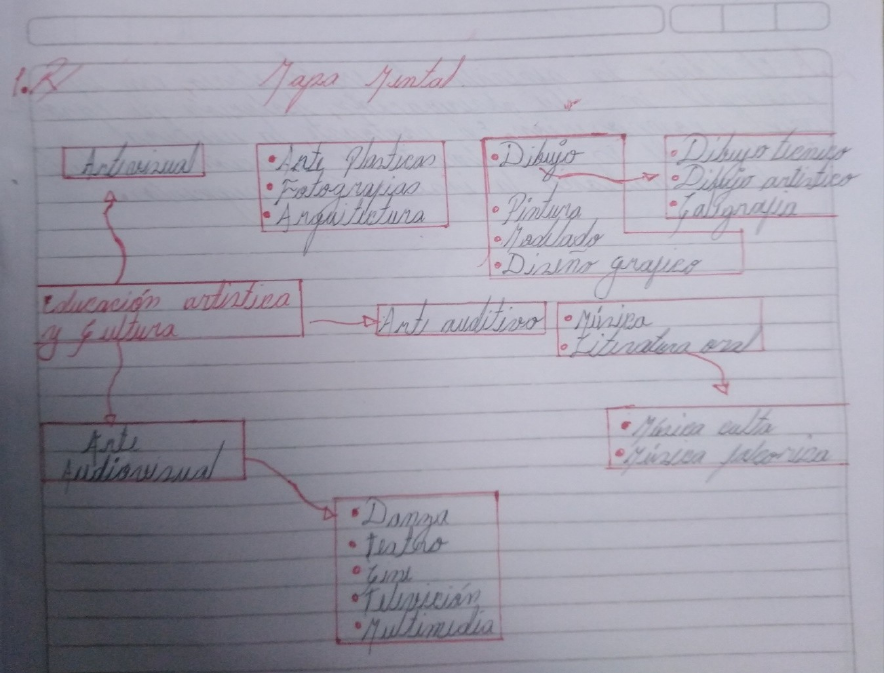 1.R/ Mapa Mental.
Artevisual
• Arte Plasticas
• Fotografias
• Arquitectura
• Dibujo
• Pintura
• Modelado
• Diseño grafico
• Dibujo tecnico
• Dibujo artistico
• Caligrafia
Educación artistica
y Cultura
Arte auditivo
• Música
• Literatura oral
• Música culta
• Música folcorica
Arte
Audiovisual
• Danza
• Teatro
• Cine
• Televición
• Multimedia